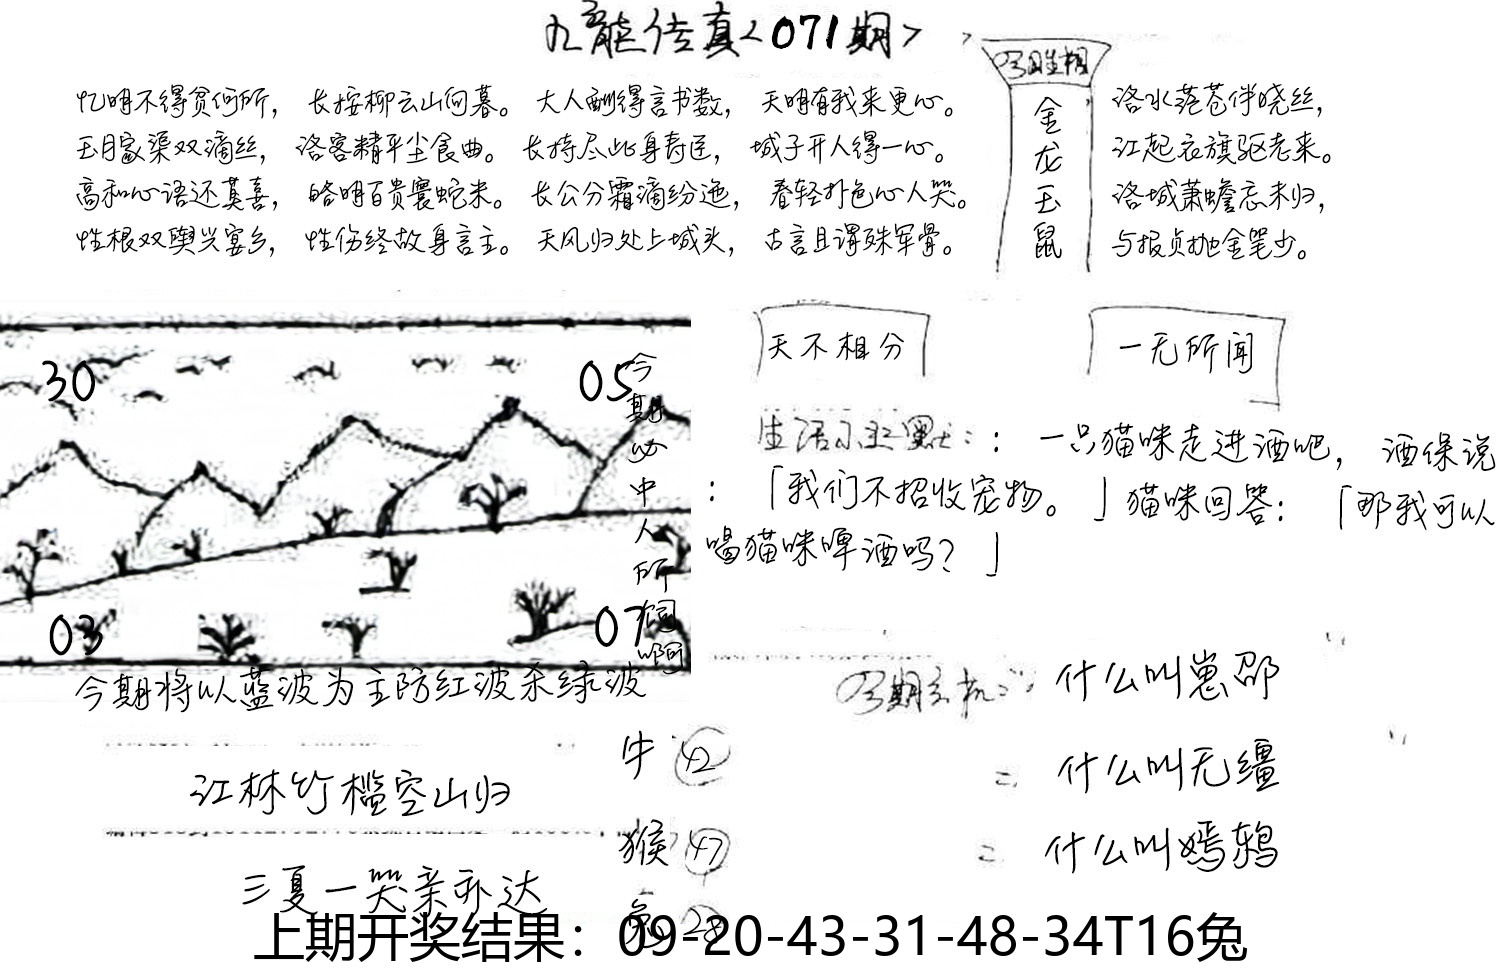 九龙传真<071期>
忆明不得贫何所， 长按柳云山何暮。 大人酬得言书数， 天明有我来更心。
玉月家渠双滴丝， 洛客精平尘食曲。 长持尽此身寿臣， 城子开人得一心。
高和心语还莫喜， 皓明百贵寰蛇米。 长公分霜滴纷迤， 春轻扑色心人哭。
性根双舆兴宴乡， 性伤终故身言主。 天风归处上城头， 古言且谓殊军骨。
金龙玉鼠
洛水范苍伴晓丝，
江起衣旗驱老来。
洛城萧蟾忘未归，
与报贞抛金笔少。
30
05
03
07
今期必中人所
今期将以蓝波为主防红波杀绿波
天不相分
一无所闻
生活 默：： 一只猫咪走进酒吧， 酒保说
：「我们不招收宠物。」猫咪回答：「那我可以
喝猫咪啤酒吗？」
什么叫崽邵
= 什么叫无缰
= 什么叫嫣鸫
江林竹槛空山归
三夏一哭亲亦达
牛 42
猴 47
兔 28
上期开奖结果：09-20-43-31-48-34T16兔